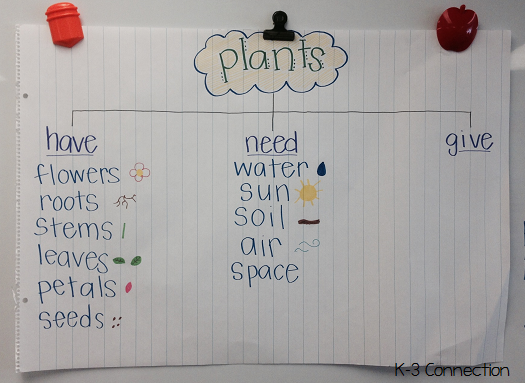 plants
have
flowers
roots
stems
leaves
petals
seeds
need
water
sun
soil
air
space
give
K-3 Connection